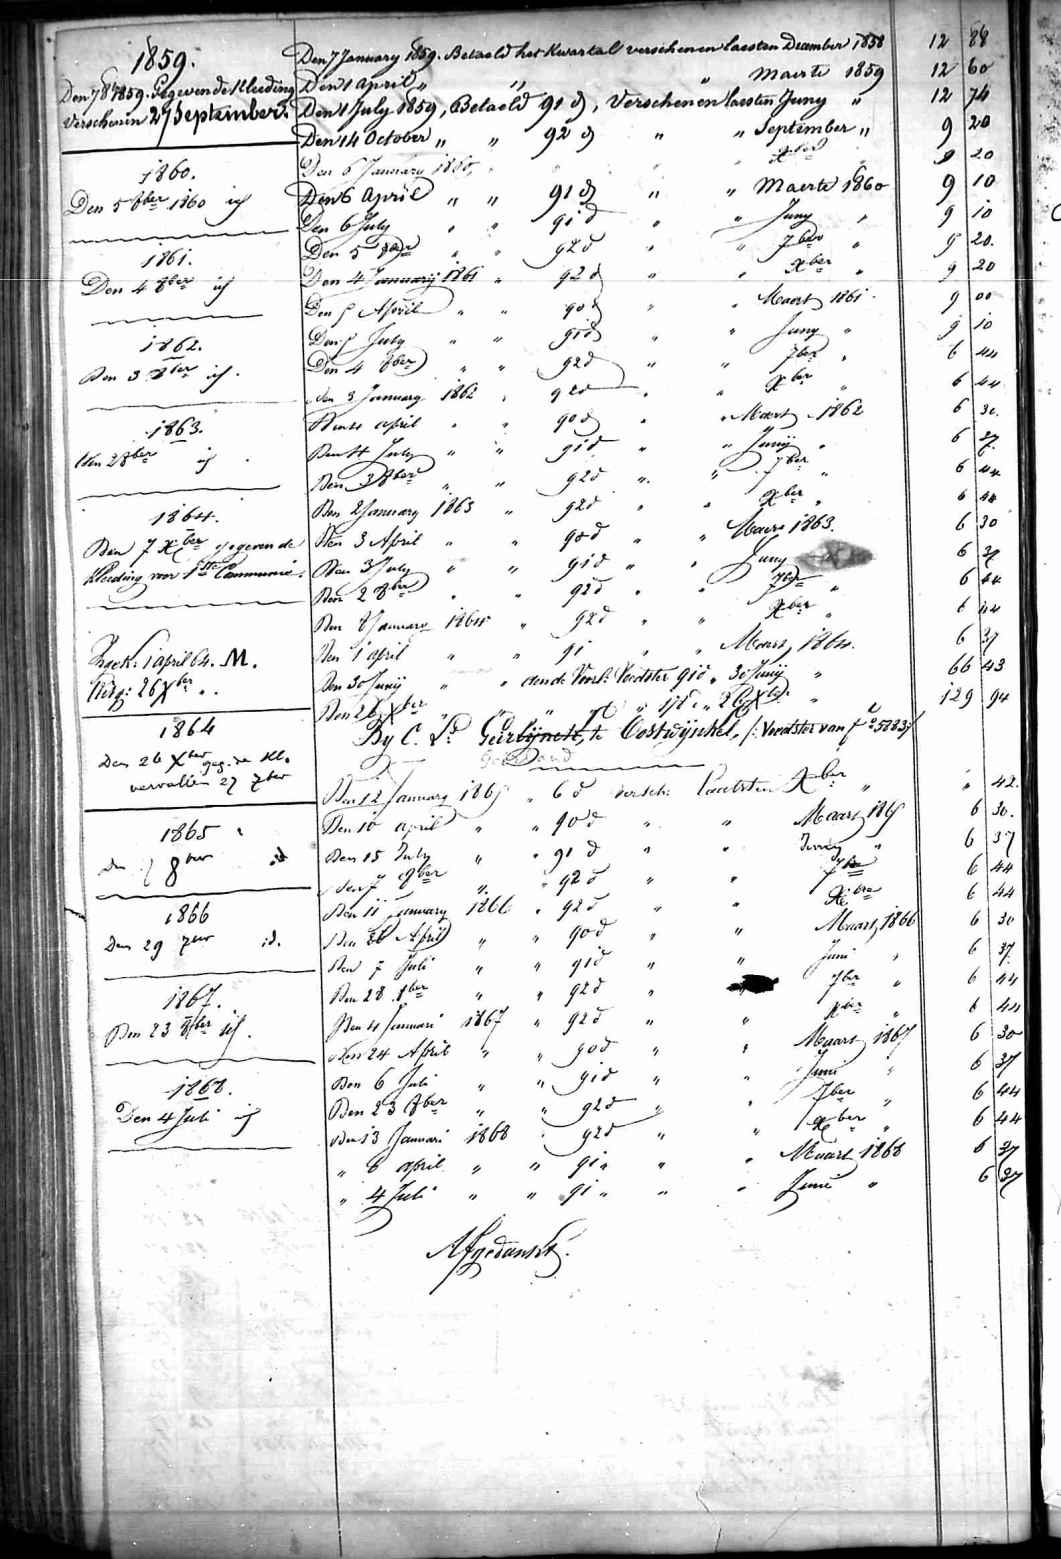 1859.
Den 7 8br 1859. Gegeven de Kleeding
Verschenen 27 September.
1860.
Den 5 8ber 1860 id
1861.
Den 4 8ber id
1862.
Den 3 8ber id.
1863.
Den 2 8ber id.
1864.
Den 7 Xber gegeven de
Kleeding voor 1ste Communie.
1 april 64. M.
26 Xber „.
1864
Den 26 Xber geg. de Kl.
vervallen 27 7ber
1865
den 7 8ber id
1866
Den 29 7ber id.
1867.
Den 23 8ber id.
1868.
Den 4 Juli id
Den 7 January 1859. Betaeld het Kwartal verschenen laesten December 1858 12 88
Den 1 April „ „ „ Maerte 1859 12 60
Den 1 July 1859, Betaeld 91 d, Verschenen laesten Juny „ 12 74
Den 14 October „ „ 92 d „ „ September „ 9 20
Den 6 January 1860, „ „ Xber 9 20
Den 6 April „ „ 91 d „ „ Maerte 1860 9 10
Den 6 July „ „ 91 d „ „ Juny „ 9 10
Den 5 8ber „ „ 92 d „ „ 7ber „ 9 20.
Den 4 January 1861 „ 92 d „ „ Xber „ 9 20
Den 5 April „ „ 90 d „ „ Maert 1861. 9 00
Den 5 July „ „ 91 d „ „ Juny „ 9 10
Den 4 8ber „ „ 92 d „ „ 7ber „ 6 44
den 3 January 1862 „ 92 d „ „ Xber „ 6 44
Den 4 april „ „ 90 d „ „ Maert 1862 6 30
Den 4 July „ „ 91 d „ „ Junij „ 6 37
Den 3 8ber „ „ 92 d „ „ 7ber „ 6 44
Den 2 January 1863 „ 92 d „ „ Xber „ 6 44
Den 3 April „ „ 90 d „ „ Maert 1863. 6 30
Den 3 July „ „ 91 d „ „ Juny 6 37
Den 2 8ber „ „ 92 d „ „ 7ber „ 6 44
Den 8 January 1864 „ 92 d „ „ Xber „ 6 44
Den 1 april „ „ 91 „ „ Maart 1864. 6 37
Den 30 Junij „ „ aen de Voedster 91 d „ 30 Junij „ 66 43
Den 26 Xber „ „ „ „ „ 26 Xber „ 129 94
By C. Ld te Oostwijnkel, /: Voedster van
Den 12 January 1865 „ 6 d versch. Laetsten Xber „ „ 42.
Den 10 april „ „ 90 d „ „ Maart 1865 6 30.
Den 15 July „ „ 91 d „ „ Juny „ 6 37
den 7 8ber „ „ 92 d „ „ 7ber 6 44
Den 11 January 1866 „ 92 d „ „ Xbre 6 44
Den April „ „ 90 d „ „ Maart 1866 6 30
Den 7 Juli „ „ 91 d „ „ Juni „ 6 37.
Den 28 8ber „ „ 92 d „ „ 7ber „ 6 44
Den 4 Januari 1867 „ 92 d „ „ Xber „ 6 44
Den 24 April „ „ 90 d „ „ Maart 1867 6 30
Den 6 Juli „ „ 91 d „ „ Juni „ 6 37
Den 23 8ber „ „ 92 d „ „ 7ber „ 6 44
Den 13 Januari 1868 „ 92 d „ „ Xber „ 6 44
„ 6 april „ „ 91 „ „ „ Maart 1868 6 37
„ 4 Juli „ „ 91 „ „ „ Juni „ 6 37
Afgedankt.